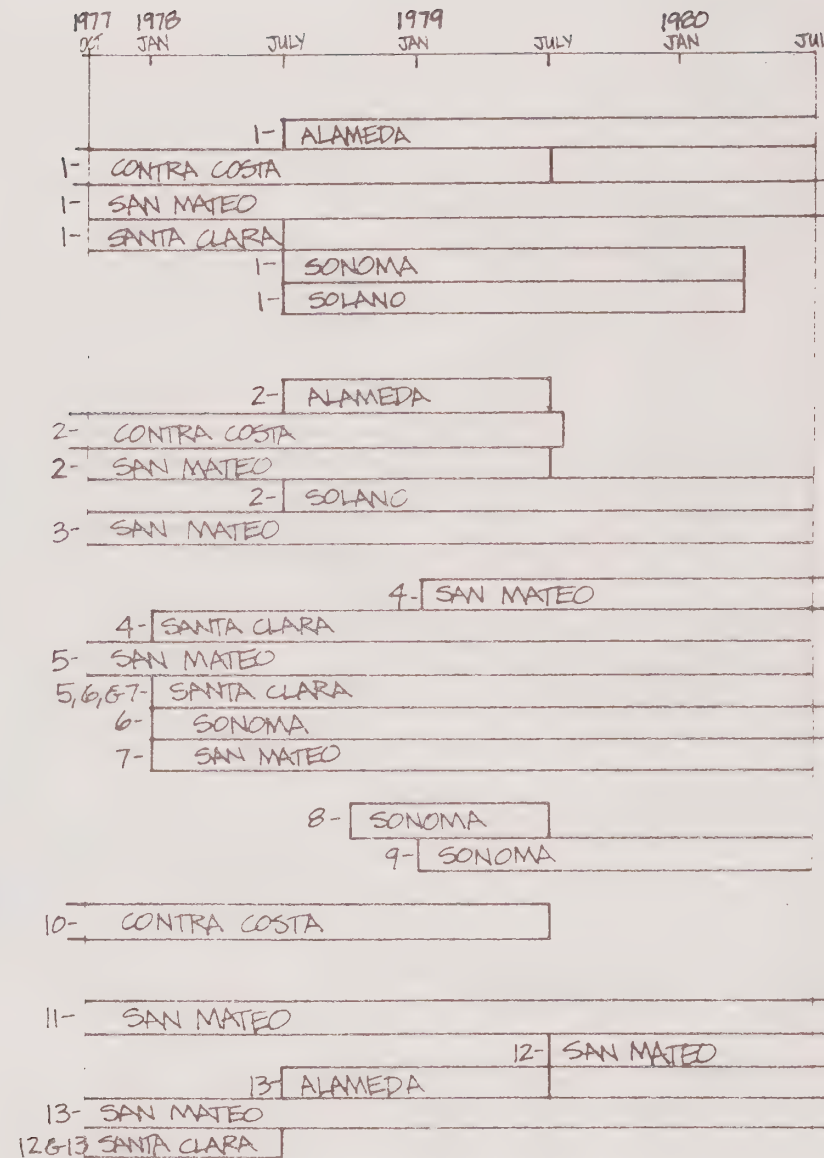 1977 1978 1979 1980
OCT JAN JULY JAN JULY JAN JUL
1- ALAMEDA
1- CONTRA COSTA
1- SAN MATEO
1- SANTA CLARA
1- SONOMA
1- SOLANO
2- ALAMEDA
2- CONTRA COSTA
2- SAN MATEO
2- SOLANO
3- SAN MATEO
4- SAN MATEO
4- SANTA CLARA
5- SAN MATEO
5,6,&7- SANTA CLARA
6- SONOMA
7- SAN MATEO
8- SONOMA
9- SONOMA
10- CONTRA COSTA
11- SAN MATEO
12- SAN MATEO
13- ALAMEDA
13- SAN MATEO
12&13 SANTA CLARA